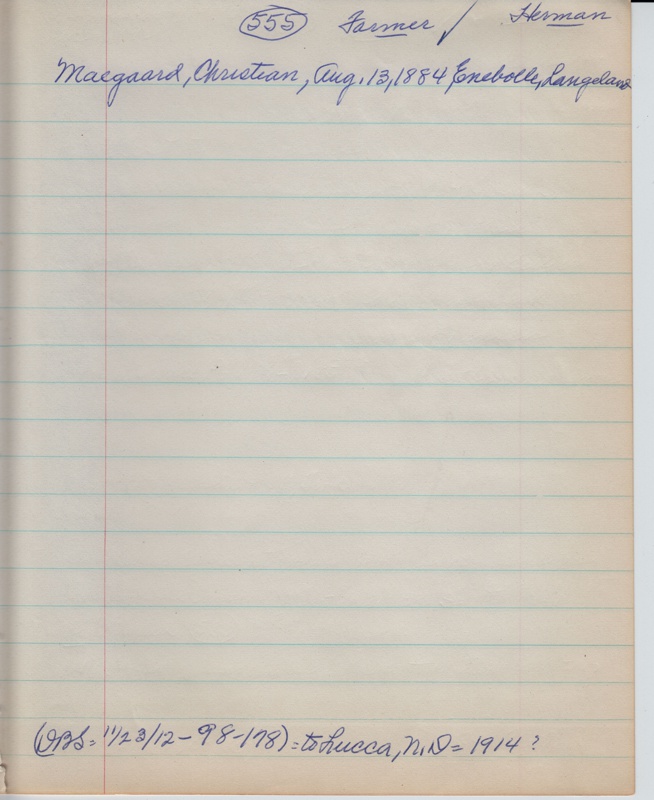 555 Farmer ✓ Herman
Maegaard, Christian, Aug. 13, 1884 Enebolle, Langeland
(DBS = 11/23/12 - 98-178) = to Lucca, N.D = 1914 ?